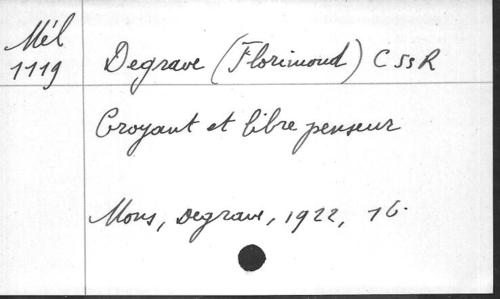 Mél
1119
Degrave (Florimond) C SS R
Croyant et libre penseur
Mons, Degrave, 1922, 16.